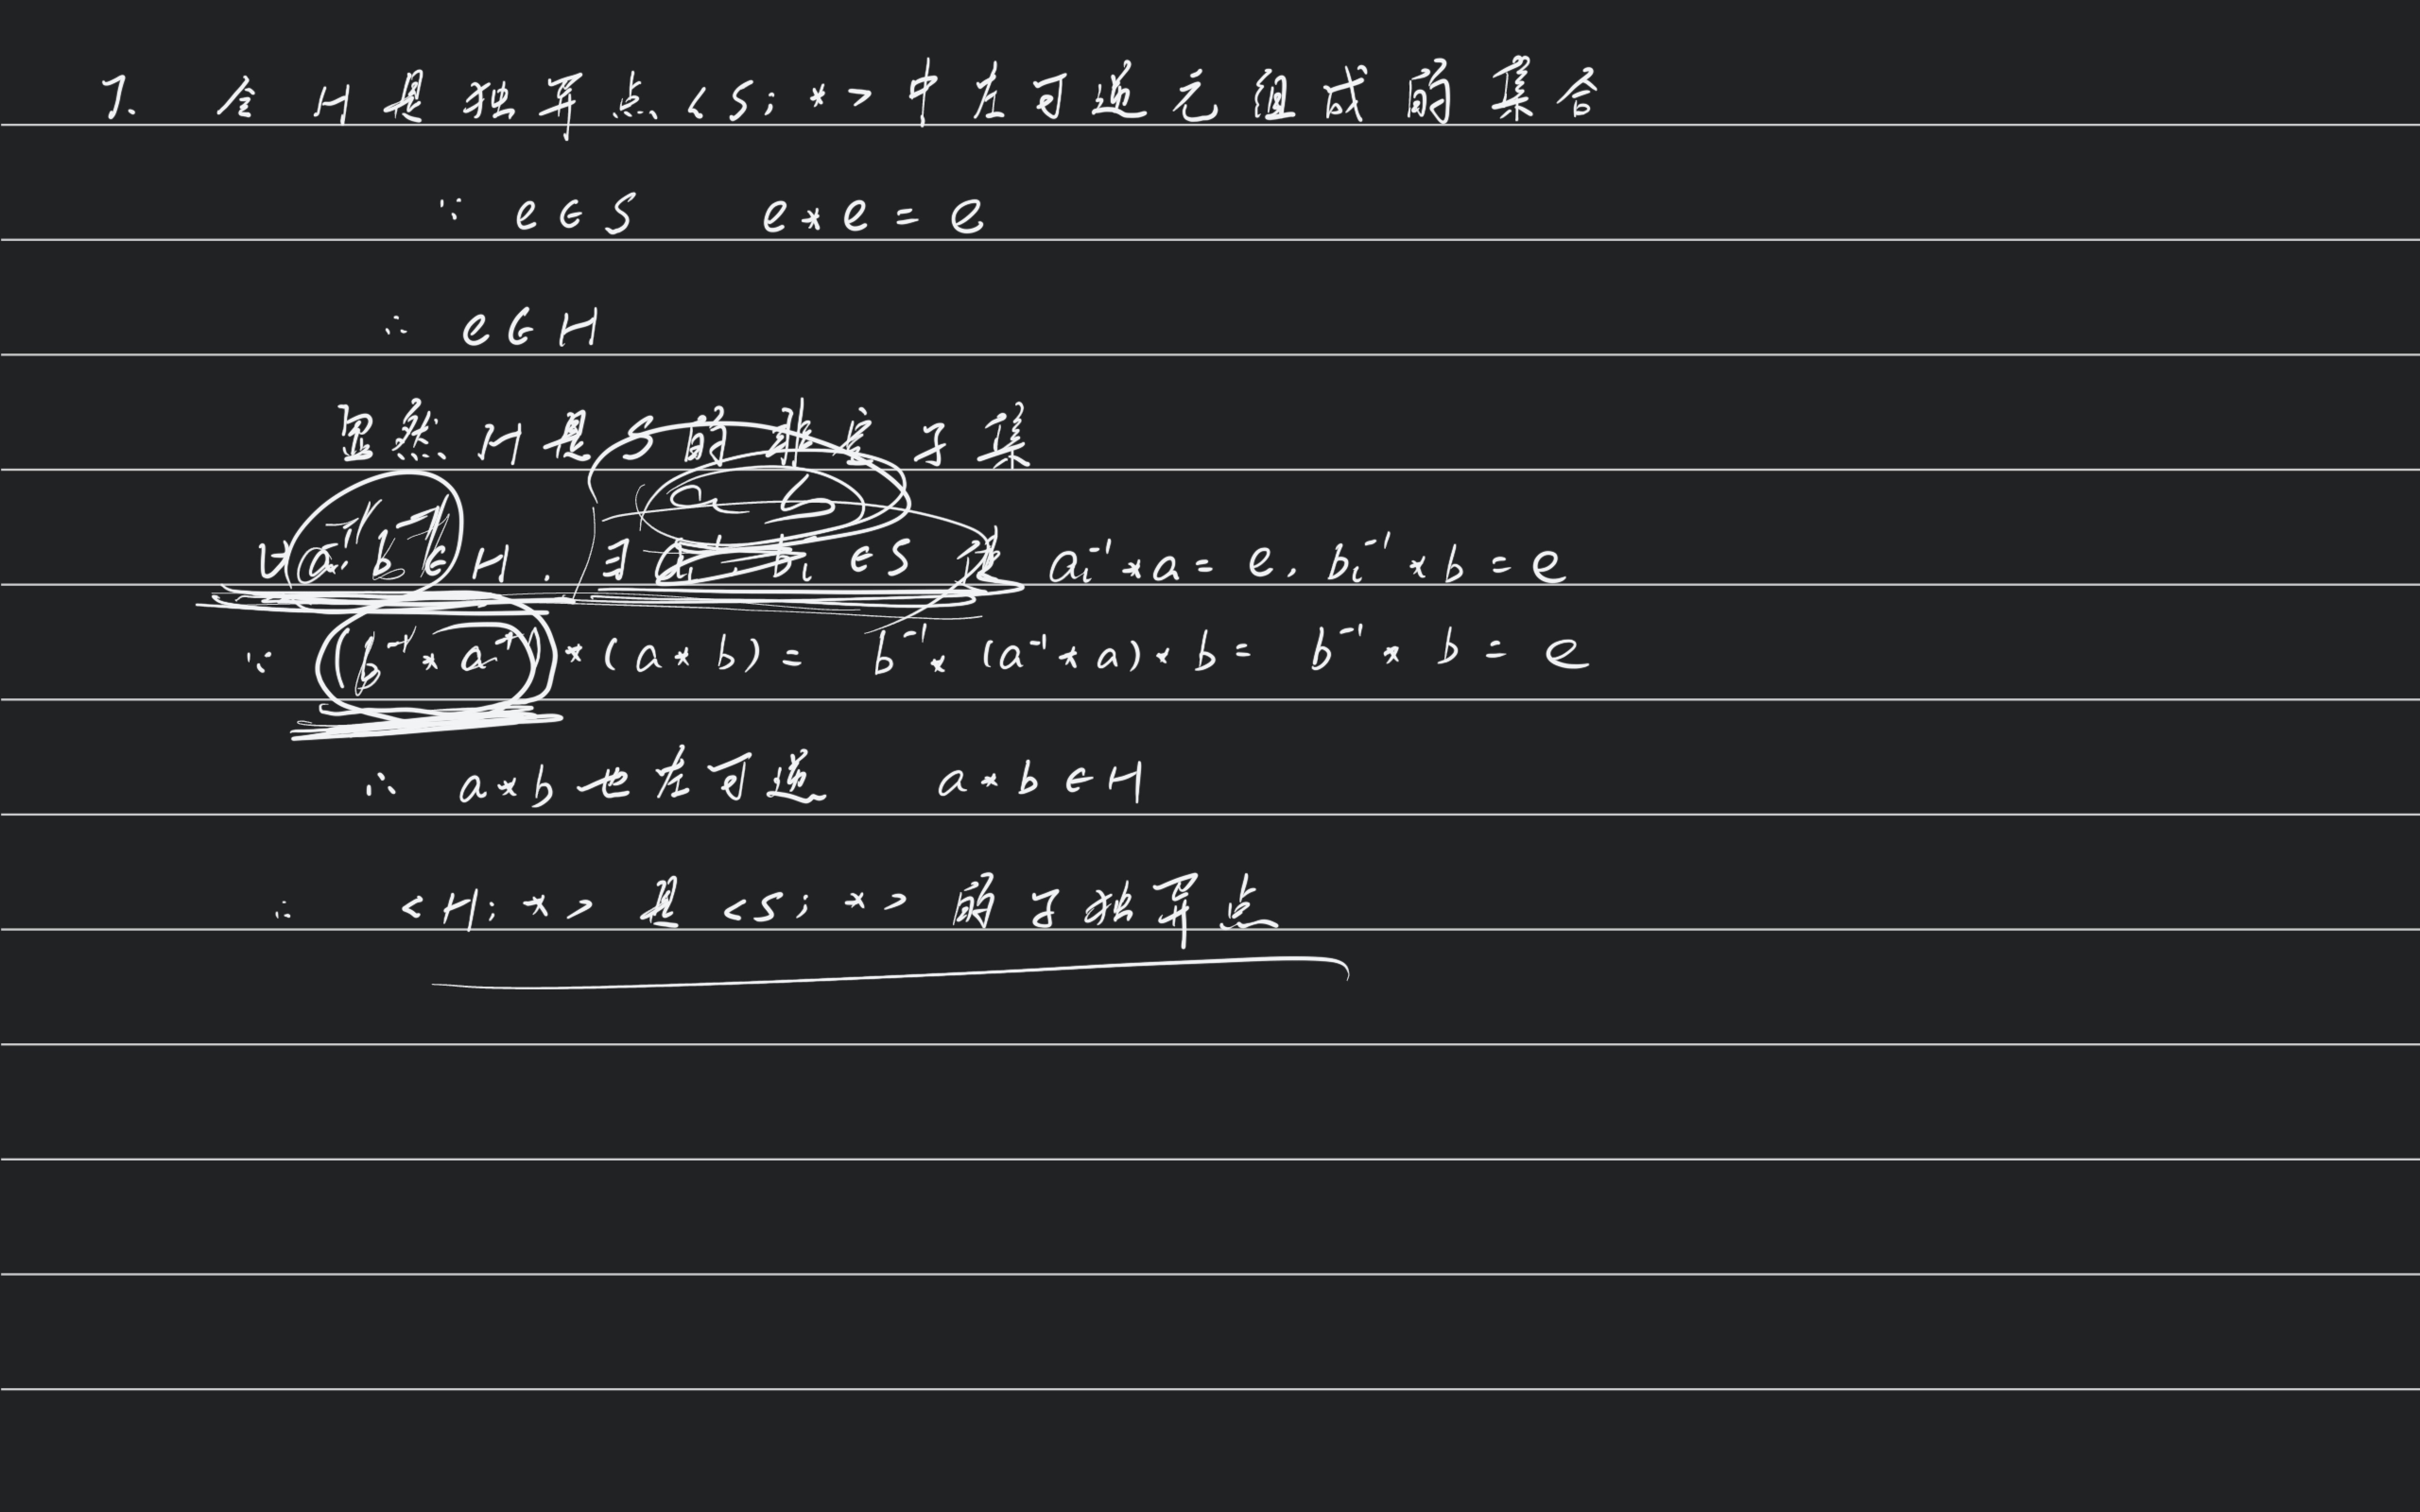 7. 令 H 是 独异点 <S; *> 中 左可逆元组成的集合
∵ e∈S e*e=e
∴ e∈H
显然 H 是 S 的 非空子集
a b
∀ a, b ∈ H. ∃ ∈S 使 aᵢ⁻¹*a=e, bᵢ⁻¹*b=e
∵ (b⁻¹*a⁻¹)*(a*b)= b⁻¹*(a⁻¹*a)*b= b⁻¹*b=e
∴ a*b 也左可逆 a*b∈H
∴ <H; *> 是 <S; *> 的子独异点